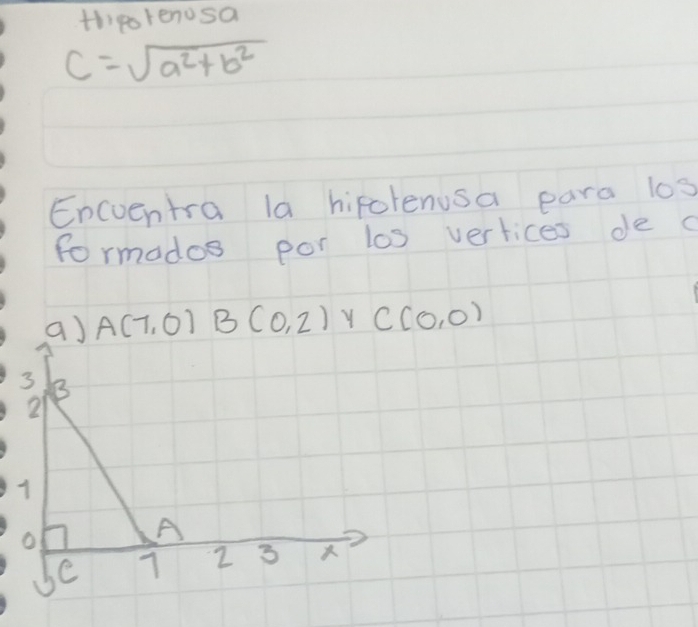 Hipotenusa
C = √a²+b²
Encuentra la hipotenusa para los
formados por los vertices de c
a) A(1,0) B(0,2) y C(0,0)
3
B
2
1
0
A
C
1 2 3 x